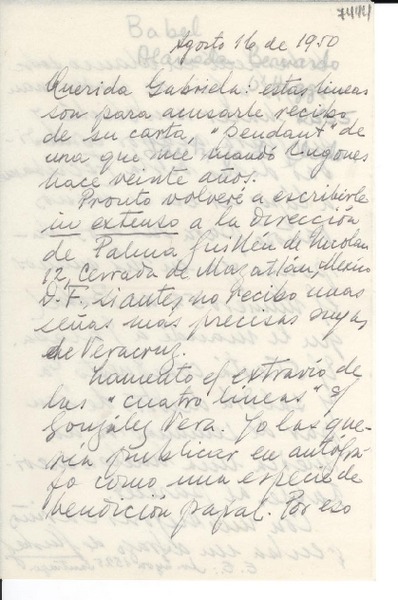 7444
Babel
Agosto 16 de 1950
Querida Gabriela: estas líneas
son para acusarle recibo
de su carta, "Pendant" de
una que me mandó Lugones
hace veinte años.
Pronto volveré a escribirle
in extenso a la dirección
de Palma Guillén de Nicolau
12, Cerrada de Mazatlán, México
D.F. si antes no recibo unas
señas mas precisas suyas
de Veracruz.
Lamento el extravío de
las "cuatro líneas" a
González Vera. Yo las que-
ría publicar en autógra-
fo como una especie de
bendición papal. Por eso